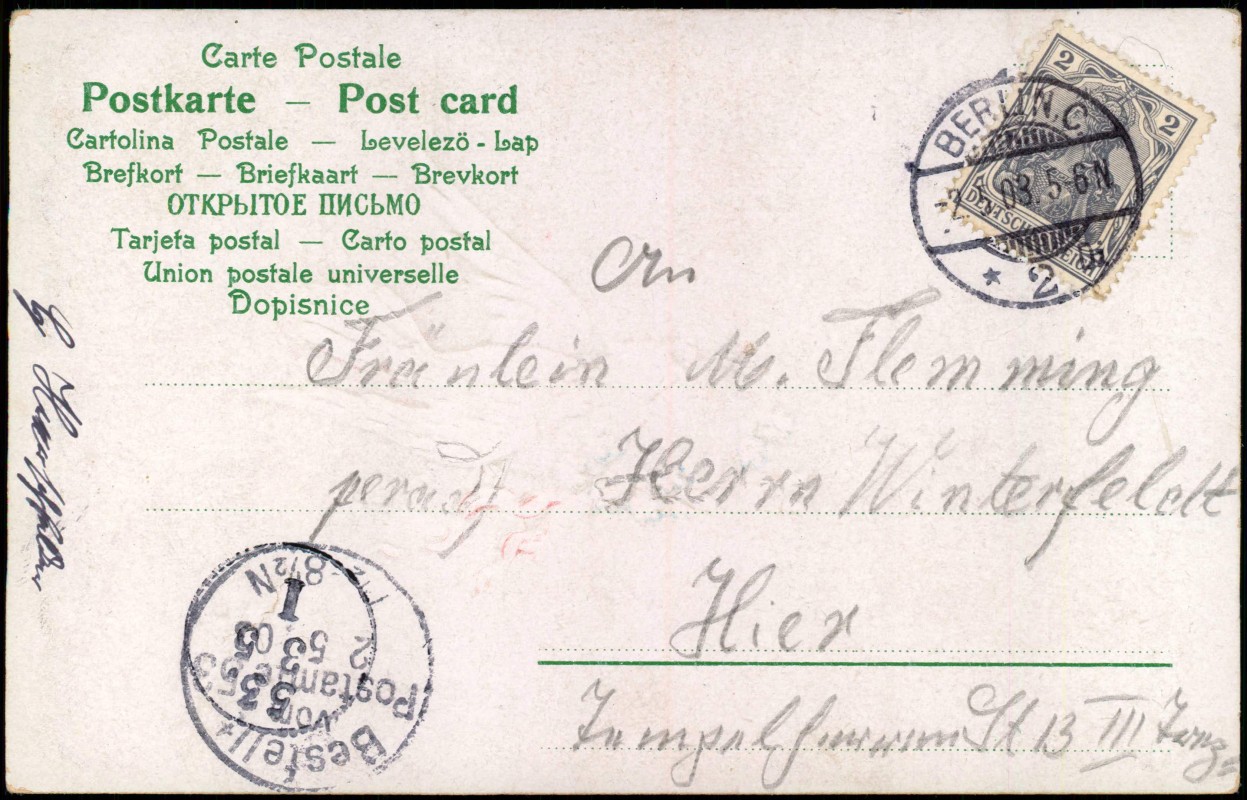 Carte Postale
Postkarte — Post card
Cartolina Postale — Levelező - Lap
Brefkort — Briefkaart — Brevkort
ОТКРЫТОЕ ПИСЬМО
Tarjeta postal — Carto postal
Union postale universelle
Dopisnice
2 2
BERLIN.C.
03. 5-6N.
* 2
An
Fräulein M. Flemming
Herrn Winterfeldt
Hier
St 13 III
Bestellt
vom
Postamte 53
7½-8½N